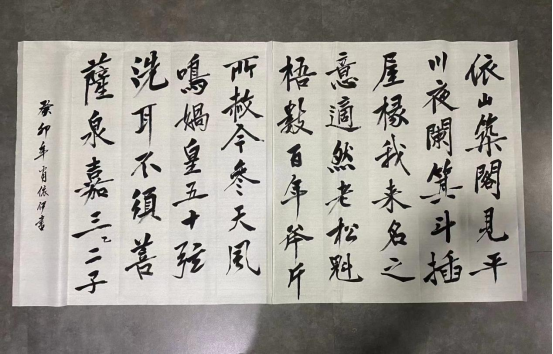 依山築閣見平
川夜闌箕斗插
屋椽我来名之
意適然老松魁
梧數百年斧斤
所赦今參天風
鳴媧皇五十弦
洗耳不須菩
薩泉嘉三二子
癸卯年肖依伊書